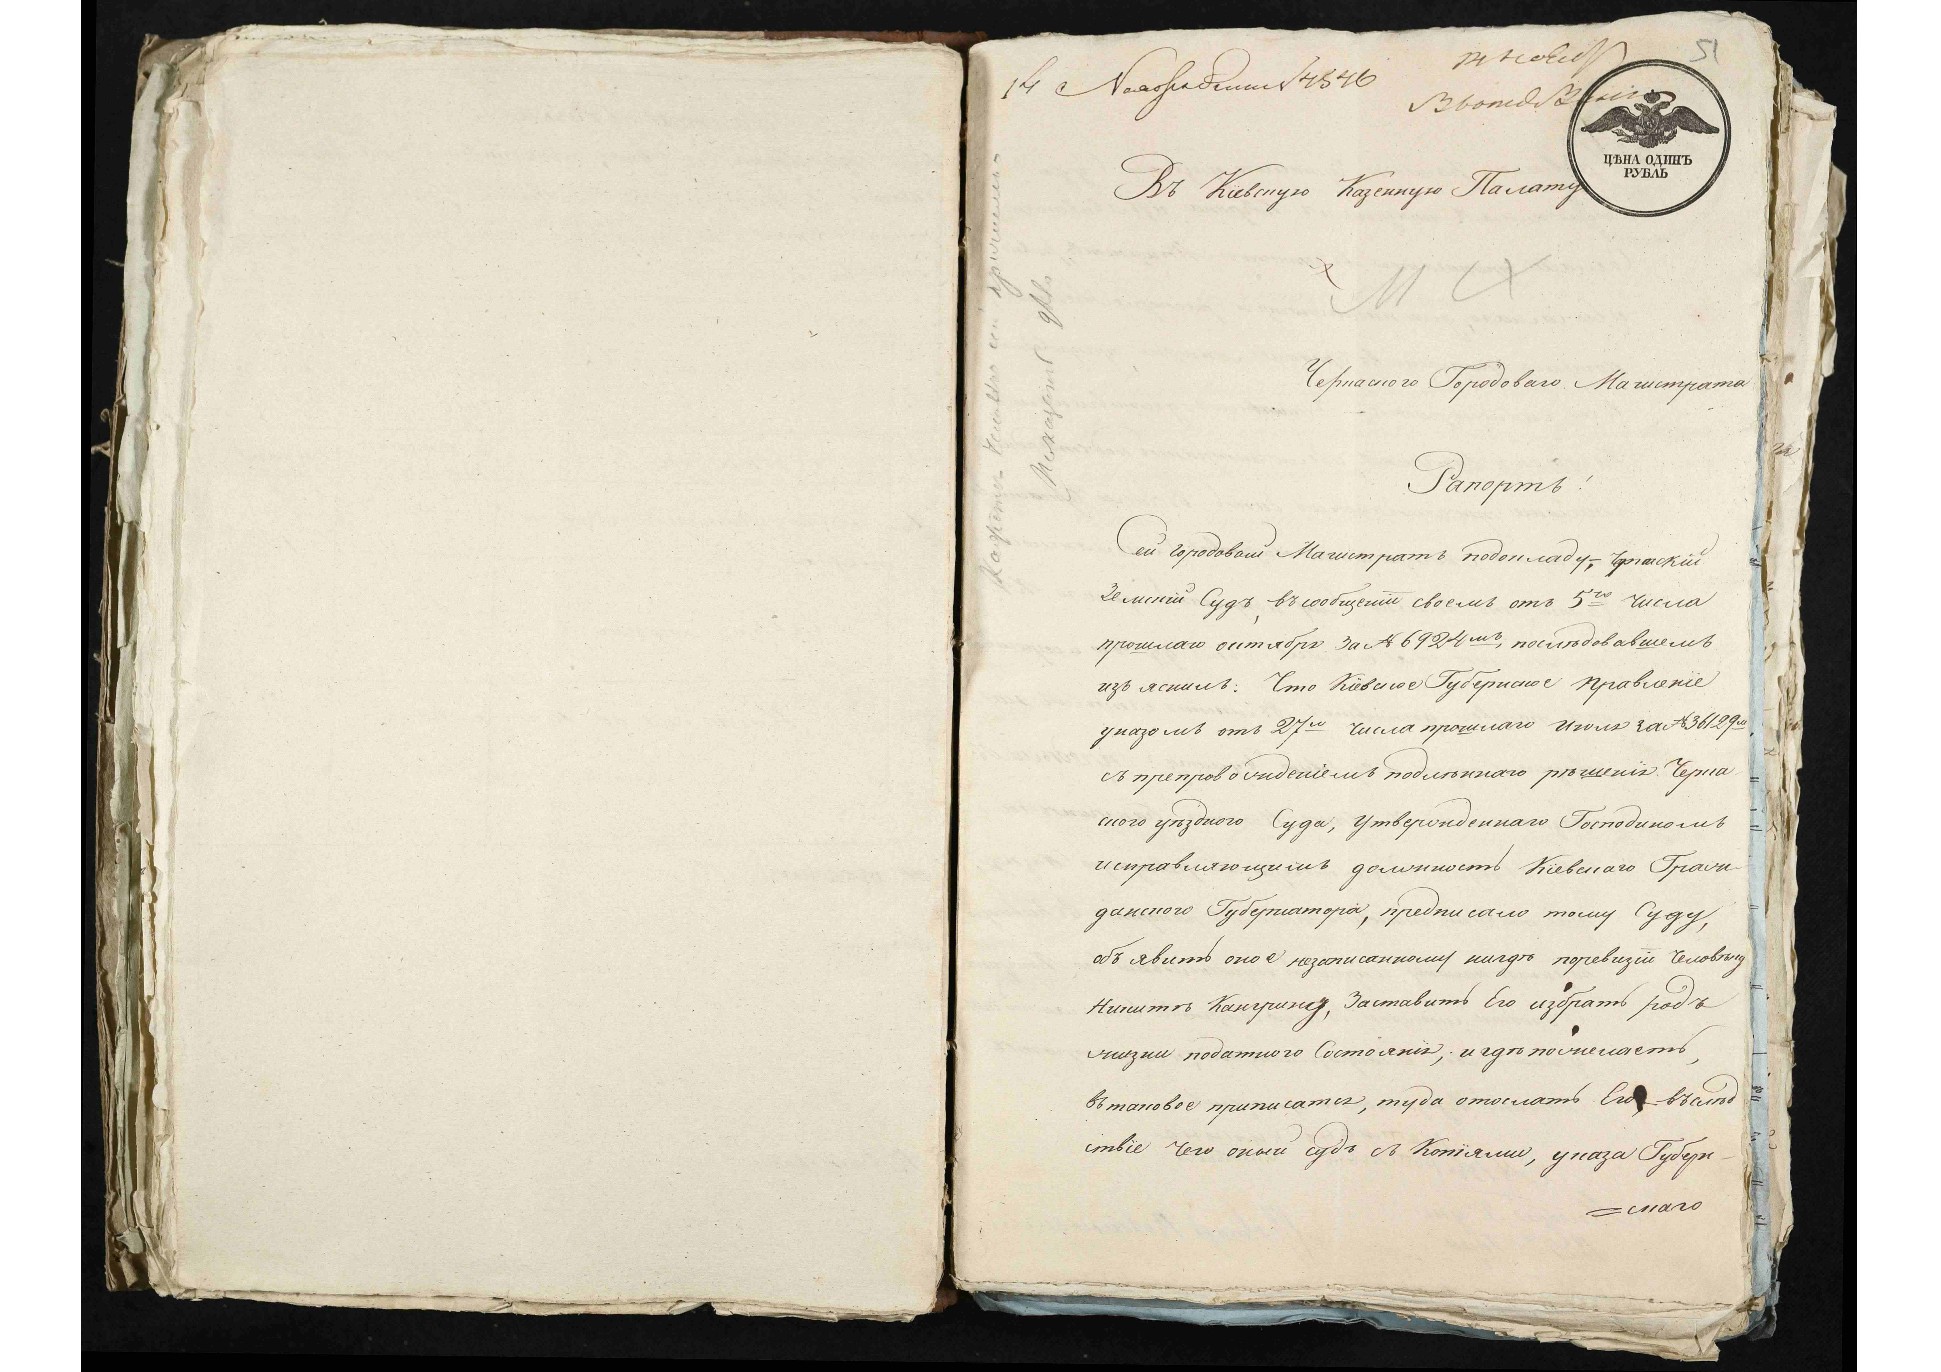 51
14 Ноября №4546
ЦѢНА ОДИНЪ
РУБЛЬ
Въ Кіевскую Казенную Палату
Черкаского Городоваго Магистрата
Рапортъ!
Сей городовой Магистратъ подокладу, Черкаскій
Земскій Судъ, въ сообщеніи своемъ отъ 5го числа
прошлаго октября за №6924мъ, послѣдовавшемъ
изъяснилъ: Что Кіевское Губернское Правленіе
указомъ отъ 27го числа прошлаго Июля за №36129м
съ препровожденіемъ подлѣннаго рѣшенія Черка
ского уѣздного Суда, утвержденнаго Господиномъ
исправляющимъ должность Кіевскаго Граж-
данского Губернатора, предписало тому Суду,
объявить оное незаписанному нигдѣ поревизіи человѣку
Никитѣ, Заставить Его избрать родъ
жизни податного Состоянія, и гдѣ пожелаетъ,
въ таковое приписатся, туда отослать Его, въ слѣд
ствіе чего оный судъ съ Копіями, указа Губерн-
=скаго